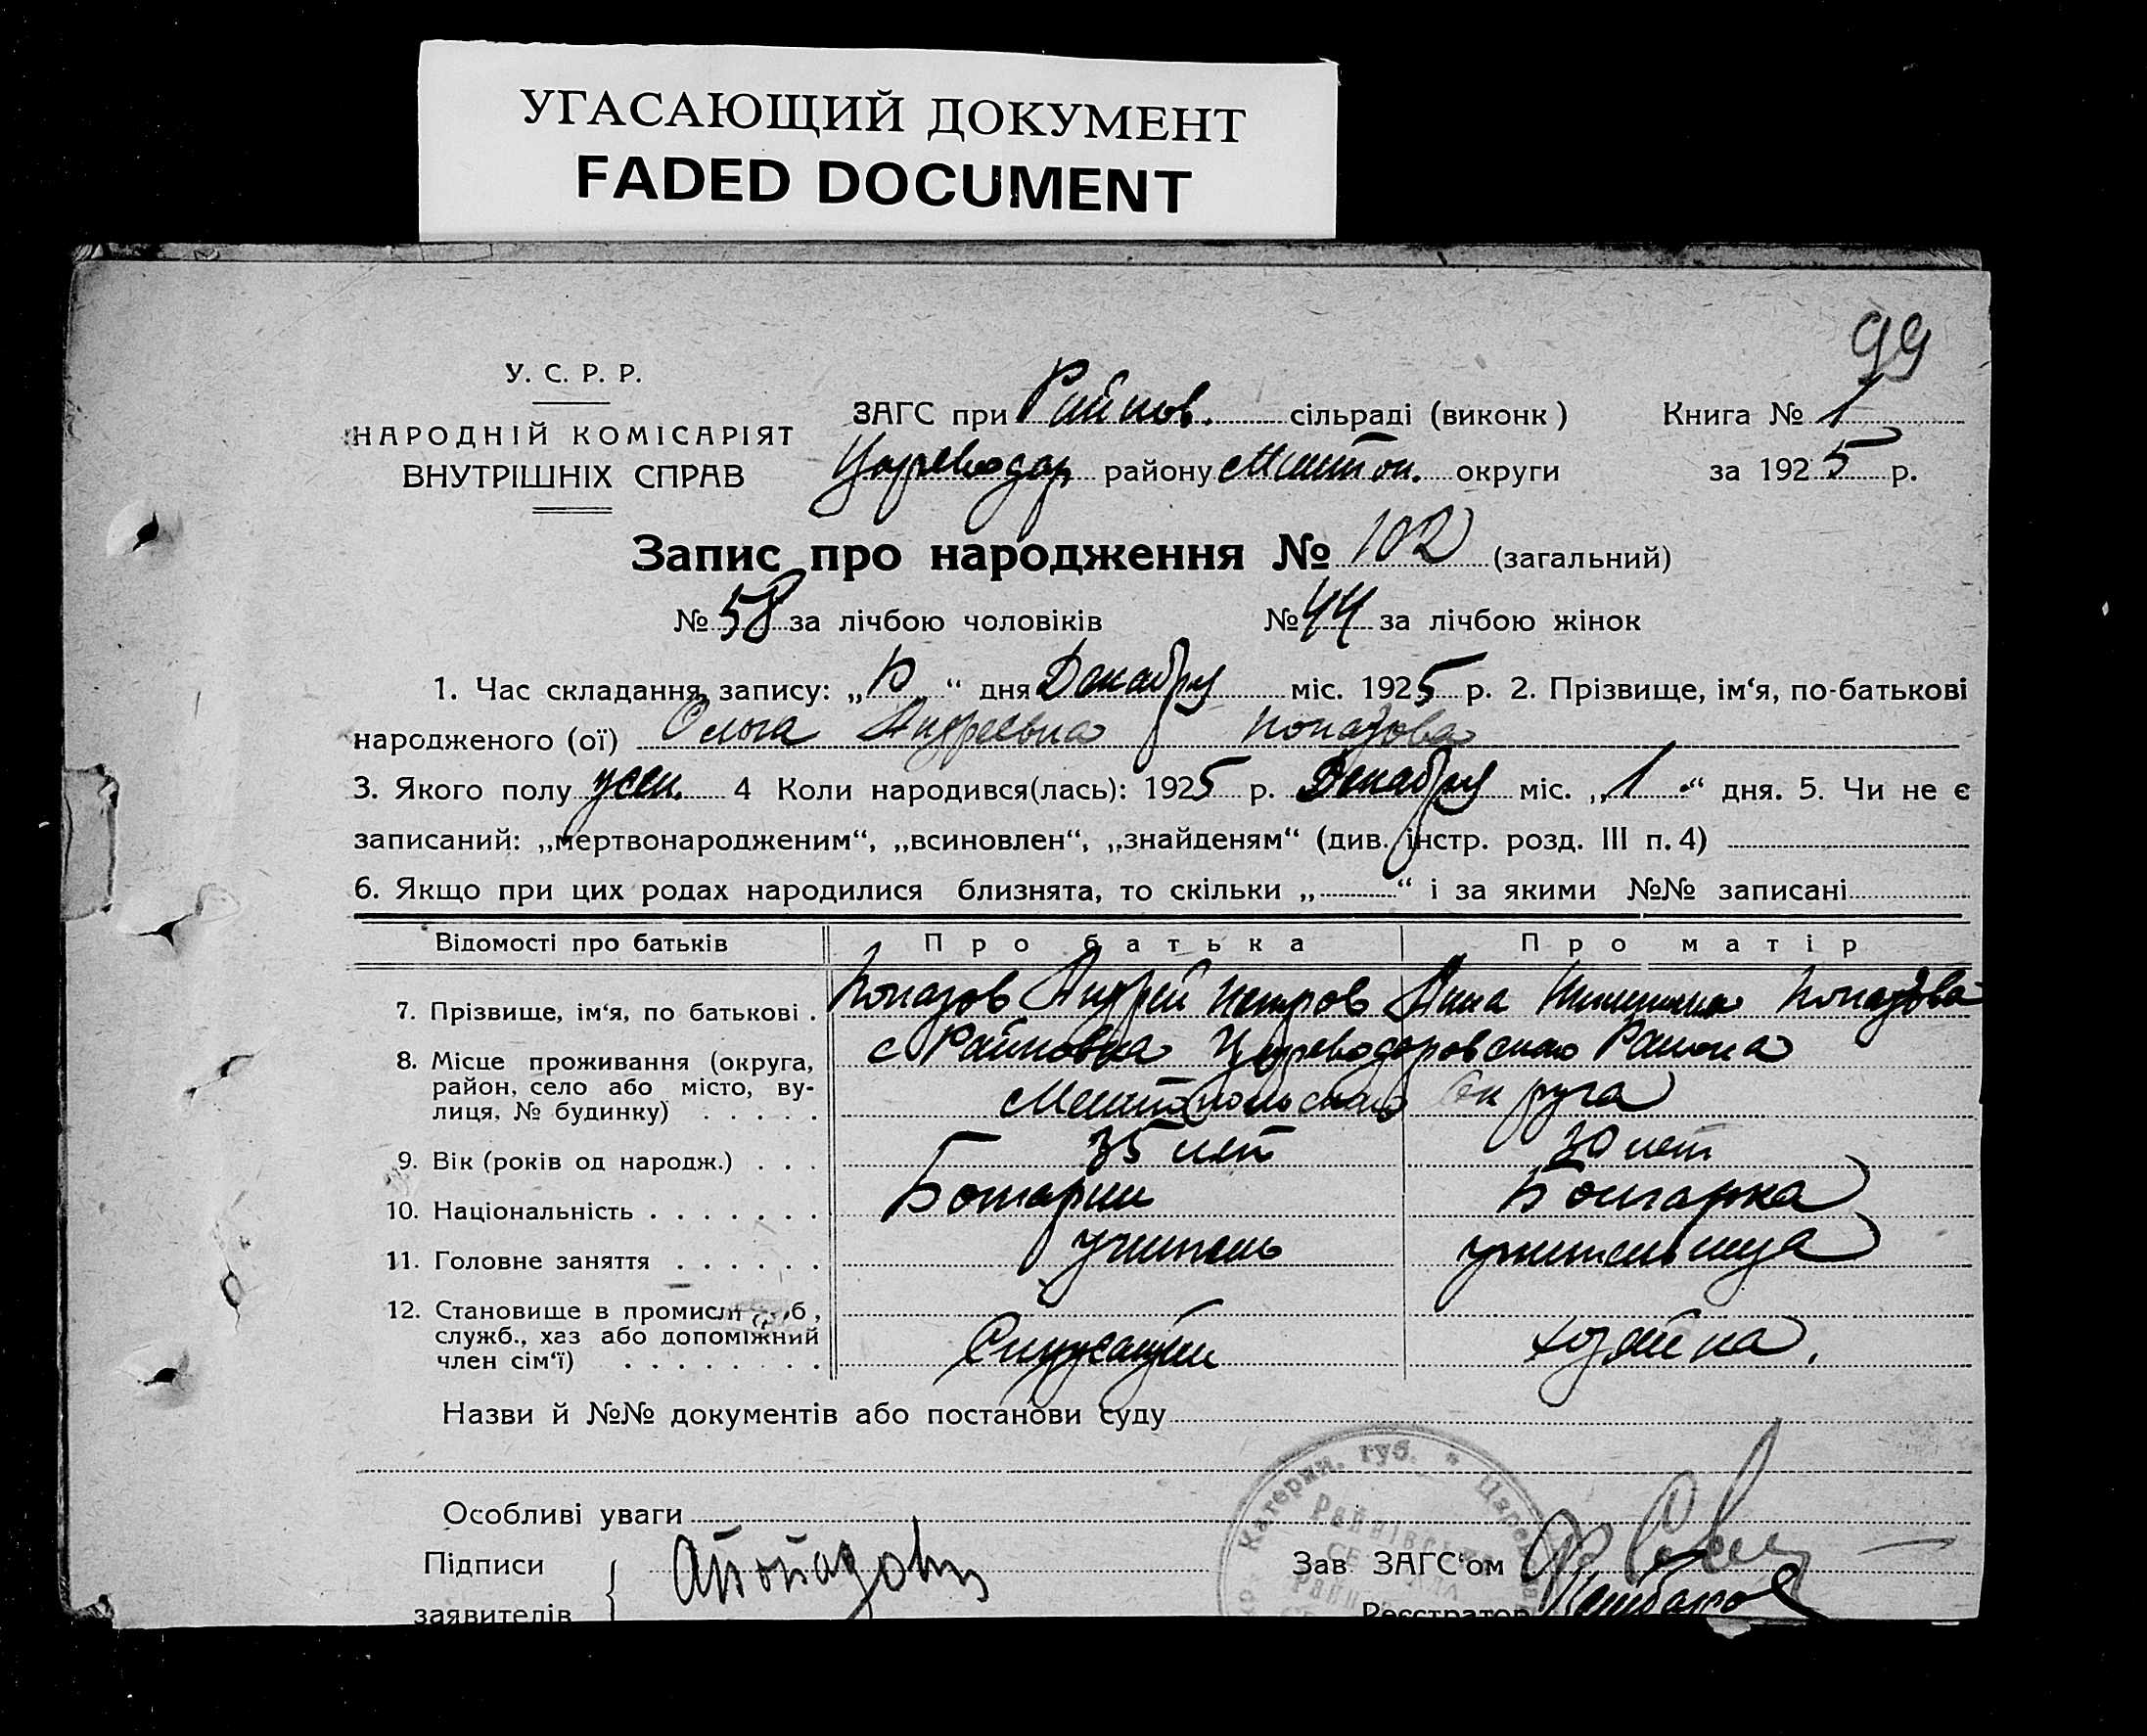 УГАСАЮЩИЙ ДОКУМЕНТ
FADED DOCUMENT
99
У. С. Р. Р.
НАРОДНІЙ КОМІСАРІЯТ
ВНУТРІШНІХ СПРАВ
ЗАГС при Райнов. сільраді (виконк) Книга № 1
Цареводар району Мелітоп. округи за 1925 р.
Запис про народження № 102 (загальний)
№ 58 за лічбою чоловіків № 44 за лічбою жінок
1. Час складання запису: „ “ дня Декабря міс. 1925 р. 2. Прізвище, ім‘я, по-батькові
народженого (ої) Ольга Андреевна Попазова
3. Якого полу жен. 4 Коли народився(лась): 1925 р. Декабря міс. „1“ дня. 5. Чи не є
записаний: „мертвонародженим“, „всиновлен“, „знайденям“ (див. інстр. розд. III п. 4)
6. Якщо при цих родах народилися близнята, то скільки „ “ і за якими №№ записані
Відомості про батьків Про батька Про матір
7. Прізвище, ім‘я, по батькові . Попазов Андрей Петров Анна Попазова
8. Місце проживання (округа, с Райновка Цареводаровскаго Района
район, село або місто, ву-
лиця, № будинку) . . . . . Мелитопольскаго Округа
9. Вік (років од народж.) . . . 35 лет 30 лет
10. Національність . . . . . . . Болгарин Болгарка
11. Головне заняття . . . . . . учитель учительница
12. Становище в промисл б,
служб., хаз або допоміжний
член сім‘ї) . . . . . . . . Служащий хозяйка.
Назви й №№ документів або постанови суду
Особливі уваги
Катерин. губ.
Райнівська
Підписи АПопазов Зав ЗАГС‘ом
заявителів Реєстратор